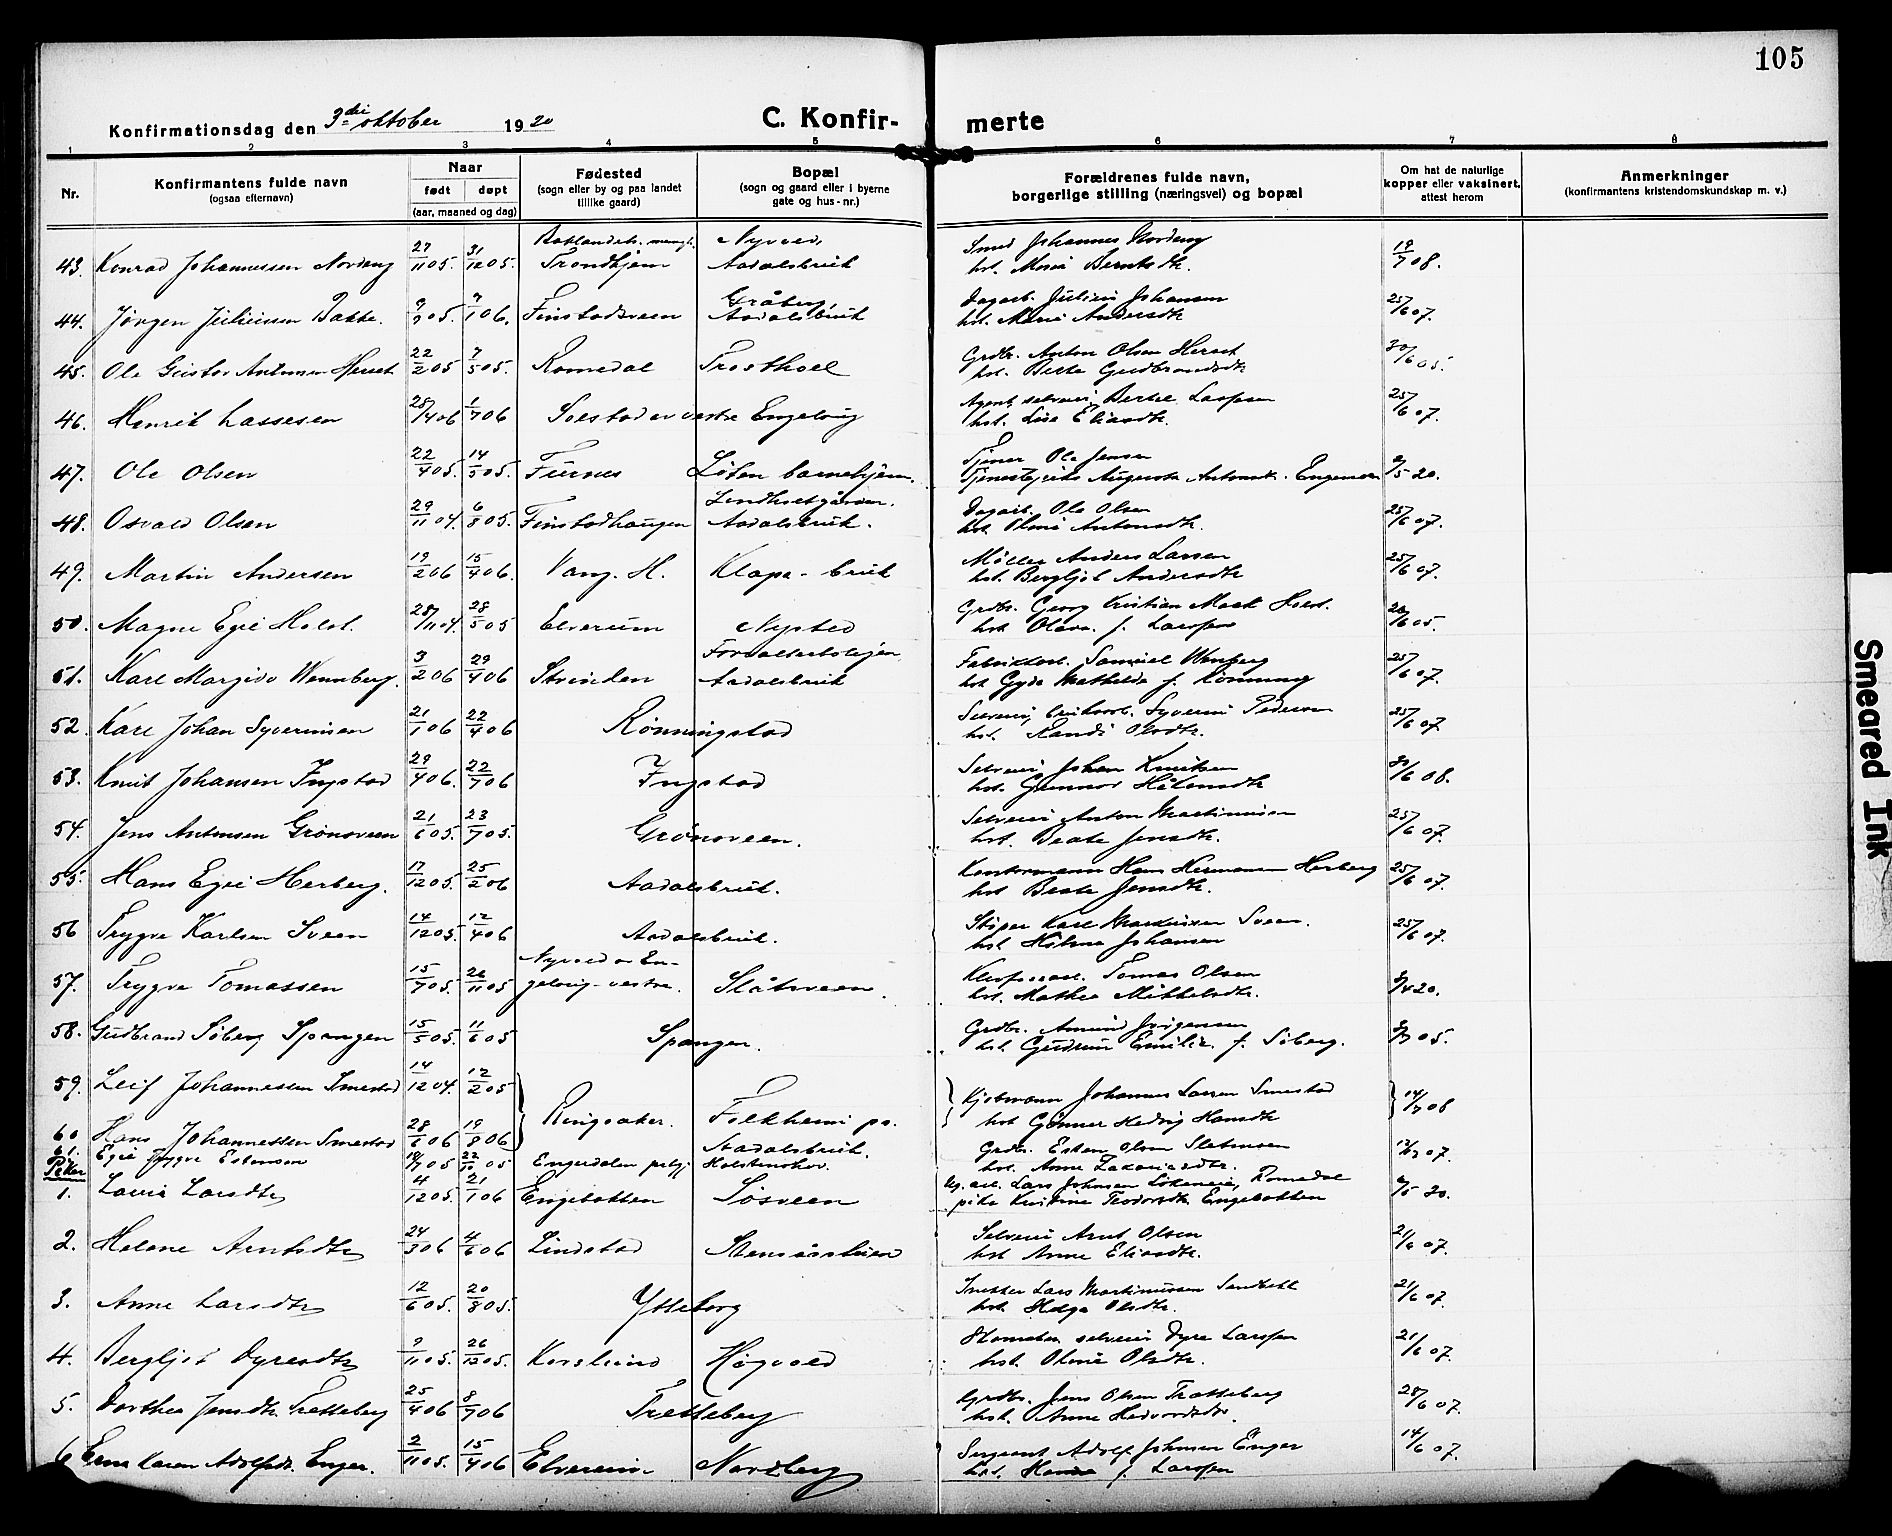 105
Konfirmationsdag den 3die oktober 1920
C. Konfirmerte
1 2 3 4 5 6 7 8
Nr.
Konfirmantens fulde navn
(ogsaa efternavn)
Naar
født døpt
(aar, maaned og dag)
Fødested
(sogn eller by og paa landet
tillike gaard)
Bopæl
(sogn og gaard eller i byerne
gate og hus-nr.)
Forældrenes fulde navn,
borgerlige stilling (næringsvei) og bopæl
Om hat de naturlige
kopper eller vaksinert,
attest herom
Anmerkninger
(konfirmantens kristendomskundskap m. v.)
43. Konrad Johannessen Nordeng 27/11 05. 31/12 05. Trondhjem Nyvold, Aadalsbruk Smed Johannes Nordeng hst. Marie Berntsdtr. 19/7 08.
44. Jørgen Juliussen Bakke. 9/9 05. 7/1 06. Finstadsveen Gråberg, Aadalsbruk Dagarb. Julius Johansen hst. Marie Andersdtr 25/6 07.
45. Ole Gustav Antonsen Herset 22/2 05 7/5 05. Romedal Trosthoel Grdbr. Anton Olsen Herset hst. Berte Gudbrandsdtr 30/6 05.
46. Henrik Lassesen 28/4 06 1/7 06 Solstad av vestre Engelaug Agent, selveier Bertel Lassesen hst. Lise Eliasdtr. 25/6 07.
47. Ole Olsen 22/4 05. 14/5 05. Furnes Løten barnehjem. Tjener Ole Jensen Tjenestepike Augusta Antonsdtr. Engemoen 9/5 20.
48. Osvald Olsen 29/11 04. 6/8 05. Finstadhaugen Lundhsetgården. Aadalsbruk. Dagarb. Ole Olsen hst. Oline Antonsdtr. 25/6 07.
49. Martin Andersen 19/2 06 15/4 06. Vang. H. Klæpa-bruk Møller Anders Larsen hst. Bergljot Andersdtr 25/6 07.
50. Magne Egil Holst. 28/11 04. 28/5 05 Elverum Nysted Grdbr. Georg Kristian Mack Holst. hst. Olava. f. Larssen 20/6 05.
51. Karl Margido Wennberg. 3/2 06 29/4 06 Strinden Forvalterboligen, Aadalsbruk Fabrikkarb. Samuel Wennberg hst Gyda Mathilda f. Rønning 25/6 07.
52. Karl Johan Syverinsen 21/1 06 22/4 06 Rønningstad Selveier, bruksarb. Syverin Pedersen hst. Randi Olsdtr. 25/6 07.
53. Knut Johansen Ingstad 29/4 06. 22/7 06 Ingstad Selveier Johan Knutsen hst. Gunnor Håkonsdtr 9/6 08.
54. Jens Antonsen Grønoveen 21/6 05. 23/7 05. Grønoveen. Selveier Anton Martinussen hst. Beate Jensdtr. 25/6 07.
55. Hans Egil Herberg. 17/12 05. 25/2 06 Aadalsbruk. Kontormann Hans Hermansen Herberg hst Beate Jensdtr. 25/6 07.
56 Trygve Karlsen Sveen 14/12 05. 12/4 06 Aadalsbruk. Støper Karl Martinsen Sveen. hst. Hilma Johansen 25/6 07.
57. Trygve Tomassen 15/7 05. 26/11 05 Nyvold av Engelaug-vestre. Slåtsveen. Tomas Olsen hst. Mathea Mikkelsdtr. 9/4 20.
58. Gudbrand Siberg Spangen 15/5 05. 11/6 05 Spangen. Grdbr. Amund Jørgensen hst. Gudrun Emilie f. Siberg. 05.
59. Leif Johannessen Smestad 14/12 04. 12/2 05 Ringsaker. Folkheim pr. Aadalsbruk. Kjøbmann Johannes Larsen Smestad hst Gunner Hedvig Hansdtr 14/7 08
60 Hans Johannessen Smestad 28/6 06 19/8 06
61. Egil Trygve Estensen 05 22/10 05 Engerdalen Holstenshov. Grdbr. Esten Olsen Sletmoen hst. Anne Zakariasdtr. 07.
Piker
1. Laura Larsdtr 4/12 05. 21/1 06 Engebakken Løsveen Lars Johnsen Løkeneie, Romedal pike Kristine Teodorsdtr Engebakken 9/5 20.
2. Helene Arntsdtr 24/3 06 4/6 06 Lindstad Stensåslien Selveier Arnt Olsen hst Anne Eliasdtr. 21/6 07.
3. Anne Larsdtr 12/6 05. 20/8 05. Ytteborg Snekker Lars Martinussen Sandbekk hst. Helga Olsdtr. 21/6 07.
4. Bergljot Dyresdtr 9/11 05. 26/12 05. Korslund Høgvold Skomaker, selveier Dyre Larssen hst. Oline Olsdtr. 21/6 07.
5. Dorthea Jensdtr. Trætteberg 25/4 06 8/7 06 Trætteberg Grdbr. Jens Olsen Trætteberg hst. Anne Hedvardsdtr. 28/6 07.
6 Erna Karen Adolfsdtr. Enger. 2/11 05. 15/4 06 Elverum. Nordberg Sergeant Adolf Johnsen Enger hst. Hanna f. Larssen 14/6 07.
Smeared Ink